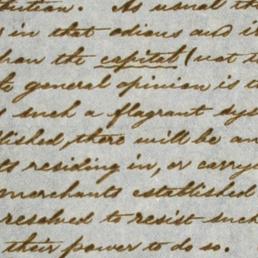 tution. As usual th
in that odious and i
than the capital (not t
e general opinion is t
such a flagrant sys
blished, there will be an
ts residing in, or carry
merchants established
resolved to resist such
their power to do so.